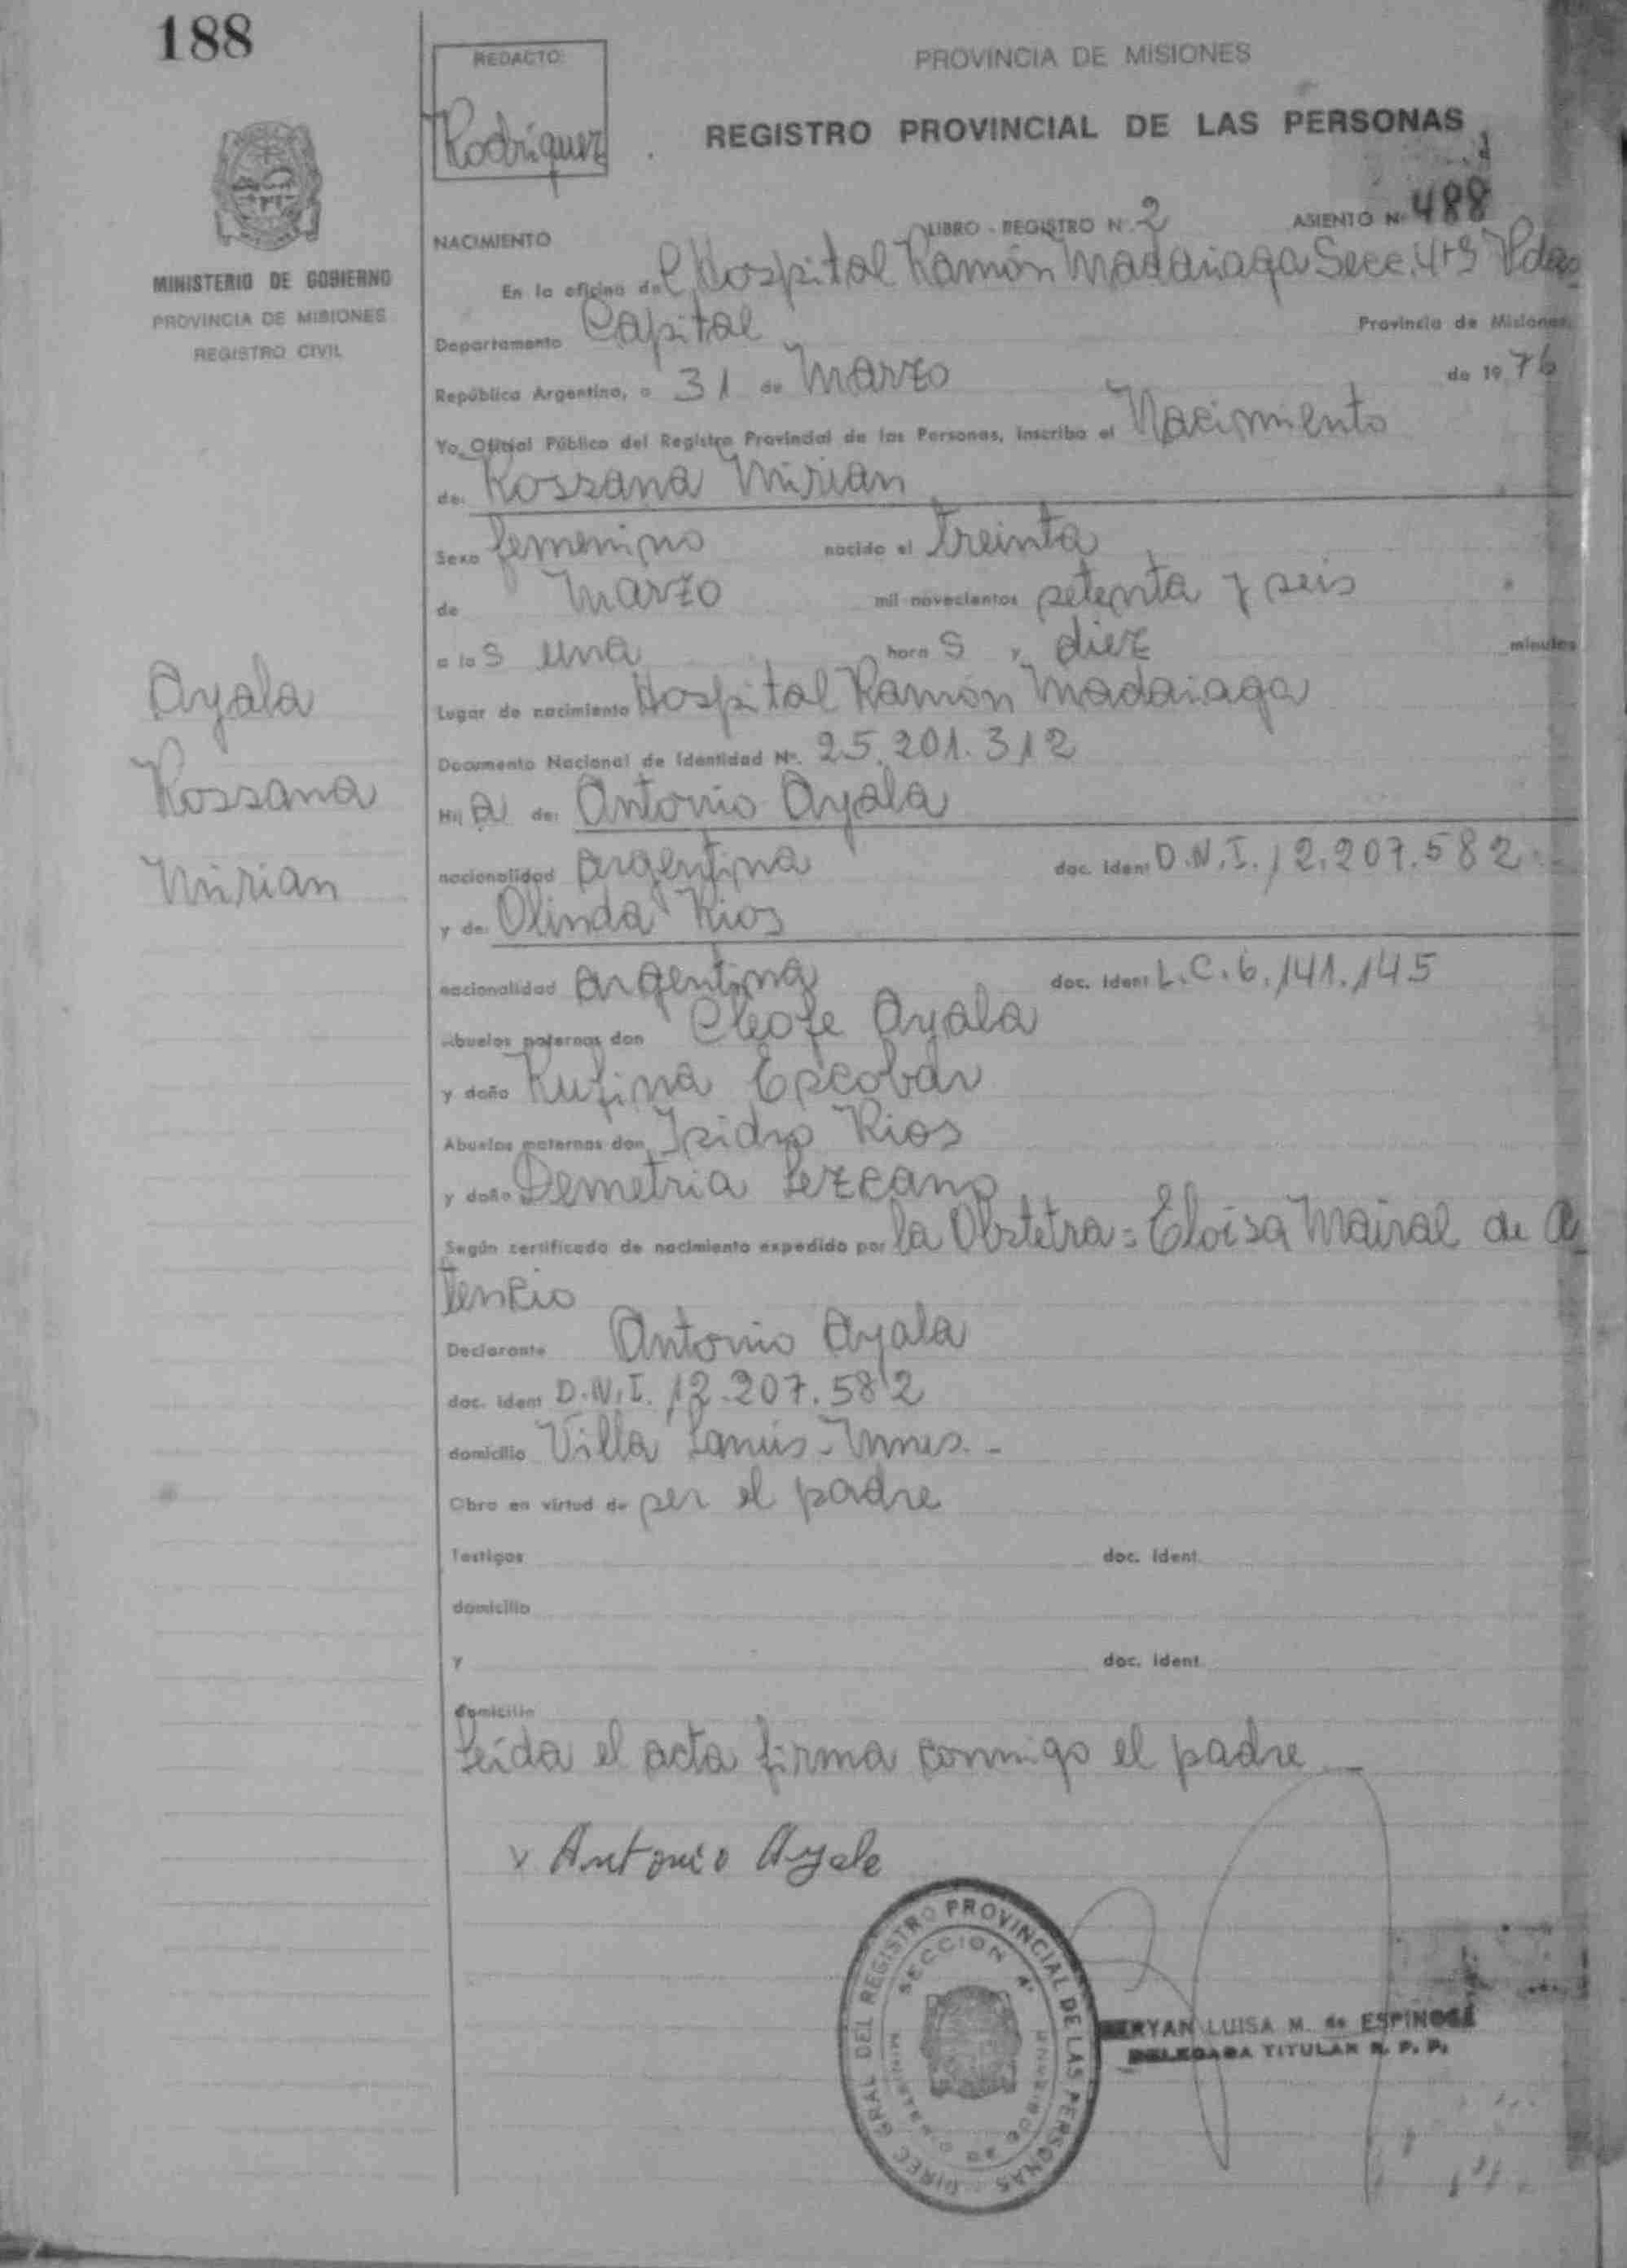 188
REDACTO:
Rodríguez
PROVINCIA DE MISIONES
REGISTRO PROVINCIAL DE LAS PERSONAS
MINISTERIO DE GOBIERNO
PROVINCIA DE MISIONES
REGISTRO CIVIL
NACIMIENTO
LIBRO - REGISTRO N.º 2
ASIENTO Nº 488
En la oficina del Hospital Ramón Madariaga Secc. 4ta Pdas
Departamento Capital Provincia de Misiones,
República Argentina, a 31 de Marzo de 1976
Yo, Oficial Público del Registro Provincial de las Personas, inscribo el Nacimiento
de: Rossana Mirian
Sexo femenino nacido el treinta
de Marzo mil novecientos setenta y seis
a las una horas y diez minutos
Lugar de nacimiento Hospital Ramón Madariaga
Documento Nacional de Identidad Nº. 25.201.312
Hija de: Antonio Ayala
nacionalidad argentina doc. ident D.N.I. 12.207.582
y de: Olinda Rios
nacionalidad argentina doc. ident L.C. 6.141.145
Abuelos paternos don Cleofe Ayala
y doña Rufina Escobar
Abuelos maternos don Isidro Rios
y doña Demetria Lezcano
Según certificado de nacimiento expedido por la Obstetra: Eloisa Mairal de A
tencio
Declarante Antonio Ayala
doc. ident D.N.I. 12.207.582
domicilio Villa Lanús - Mnes. -
Obra en virtud de ser el padre
Testigos doc. ident.
domicilio
y doc. ident.
domicilio
Leída el acta firma conmigo el padre
Antonio Ayala
Ayala
Rossana
Mirian
DIREC GRAL DEL REGISTRO PROVINCIAL DE LAS PERSONAS
SECCION 4ª
LUISA M. de ESPINOSA
DELEGADA TITULAR R. P. P.